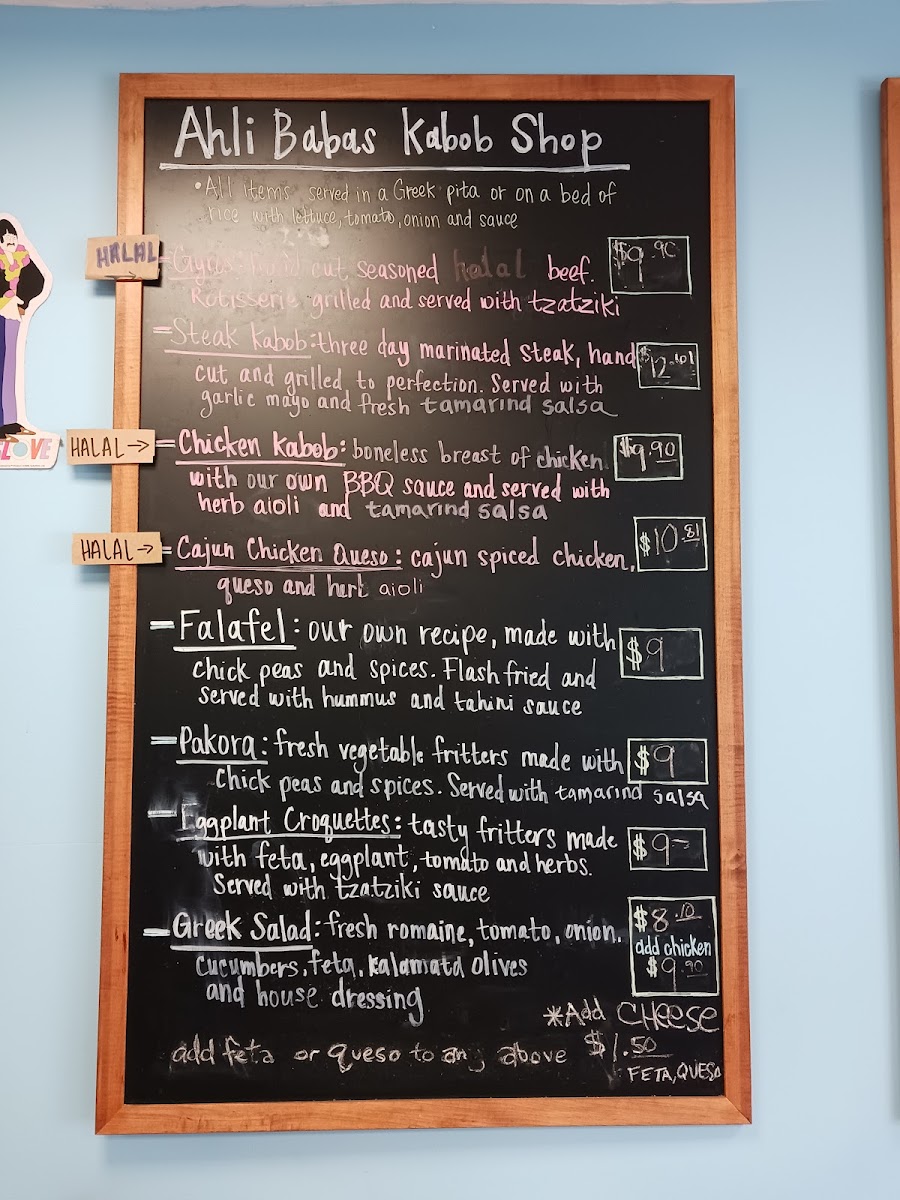 Ahli Babas Kabob Shop
• All items served in a Greek pita or on a bed of
rice with lettuce, tomato, onion and sauce
HALAL
Gyros: hand cut seasoned halal beef.
$9.90
Rotisserie grilled and served with tzatziki
= Steak Kabob: three day marinated steak, hand
$12.61
cut and grilled to perfection. Served with
garlic mayo and fresh tamarind salsa
HALAL →
= Chicken Kabob: boneless breast of chicken
$9.90
with our own BBQ sauce and served with
herb aioli and tamarind salsa
HALAL →
= Cajun Chicken Queso: cajun spiced chicken,
$10.81
queso and herb aioli
= Falafel: our own recipe, made with
$9
chick peas and spices. Flash fried and
served with hummus and tahini sauce
= Pakora: fresh vegetable fritters made with
$9
chick peas and spices. Served with tamarind salsa
= Eggplant Croquettes: tasty fritters made
$9-
with feta, eggplant, tomato and herbs.
Served with tzatziki sauce
= Greek Salad: fresh romaine, tomato, onion,
$8.10
add chicken
$9.90
cucumbers, feta, kalamata olives
and house dressing
*Add CHEESE
add feta or queso to any above $1.50
FETA, QUESO
LOVE